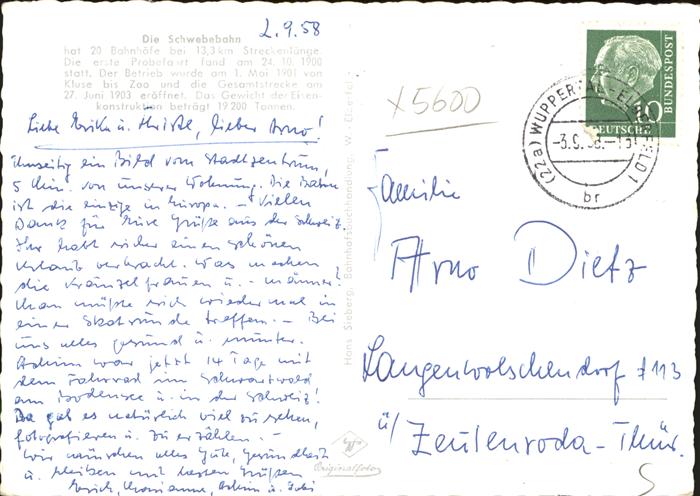 2.9.58
Die Schwebebahn
hat 20 Bahnhöfe bei 13,3 km Streckenlänge.
Die erste Probefahrt fand am 24. 10. 1900
statt. Der Betrieb wurde am 1. Mai 1901 von
Kluse bis Zoo und die Gesamtstrecke am
27. Juni 1903 eröffnet. Das Gewicht der Eisen-
konstruktion beträgt 19 200 Tonnen.
Liebe Erika u. Christl, lieber Arno!
Umseitig ein Bild vom Stadtzentrum,
5 Min. von unserer Wohnung. Die Bahn
ist die einzige in Europa. – Vielen
Dank für Eure Grüße aus der Schweiz.
Ihr habt sicher einen schönen
Urlaub verbracht. Was machen
die Kränzelfrauen u. - männer?
Man müßte sich wieder mal in
einer Skatrunde treffen. – Bei
uns alles gesund u. munter.
Achim war jetzt 14 Tage mit
dem Fahrrad im Schwarzwald
am Bodensee u. in der Schweiz!
Da gab es natürlich viel zu sehen,
fotografieren u. zu erzählen. –
Wir wünschen alles Gute, Gesundheit
u. bleiben mit besten Grüßen
Erich, Marianne, Achim u.
Hans Sieberg, Bahnhofsbuchhandlung, W.-Elberfeld
Originalfoto
x5600
DEUTSCHE BUNDESPOST
10
(22a) WUPPERTAL-ELBERFELD 1
-3.9.58.-15
br
Familie
Arno Dietz
Langenwolschendorf #113
ü/ Zeulenroda-Thür.
S